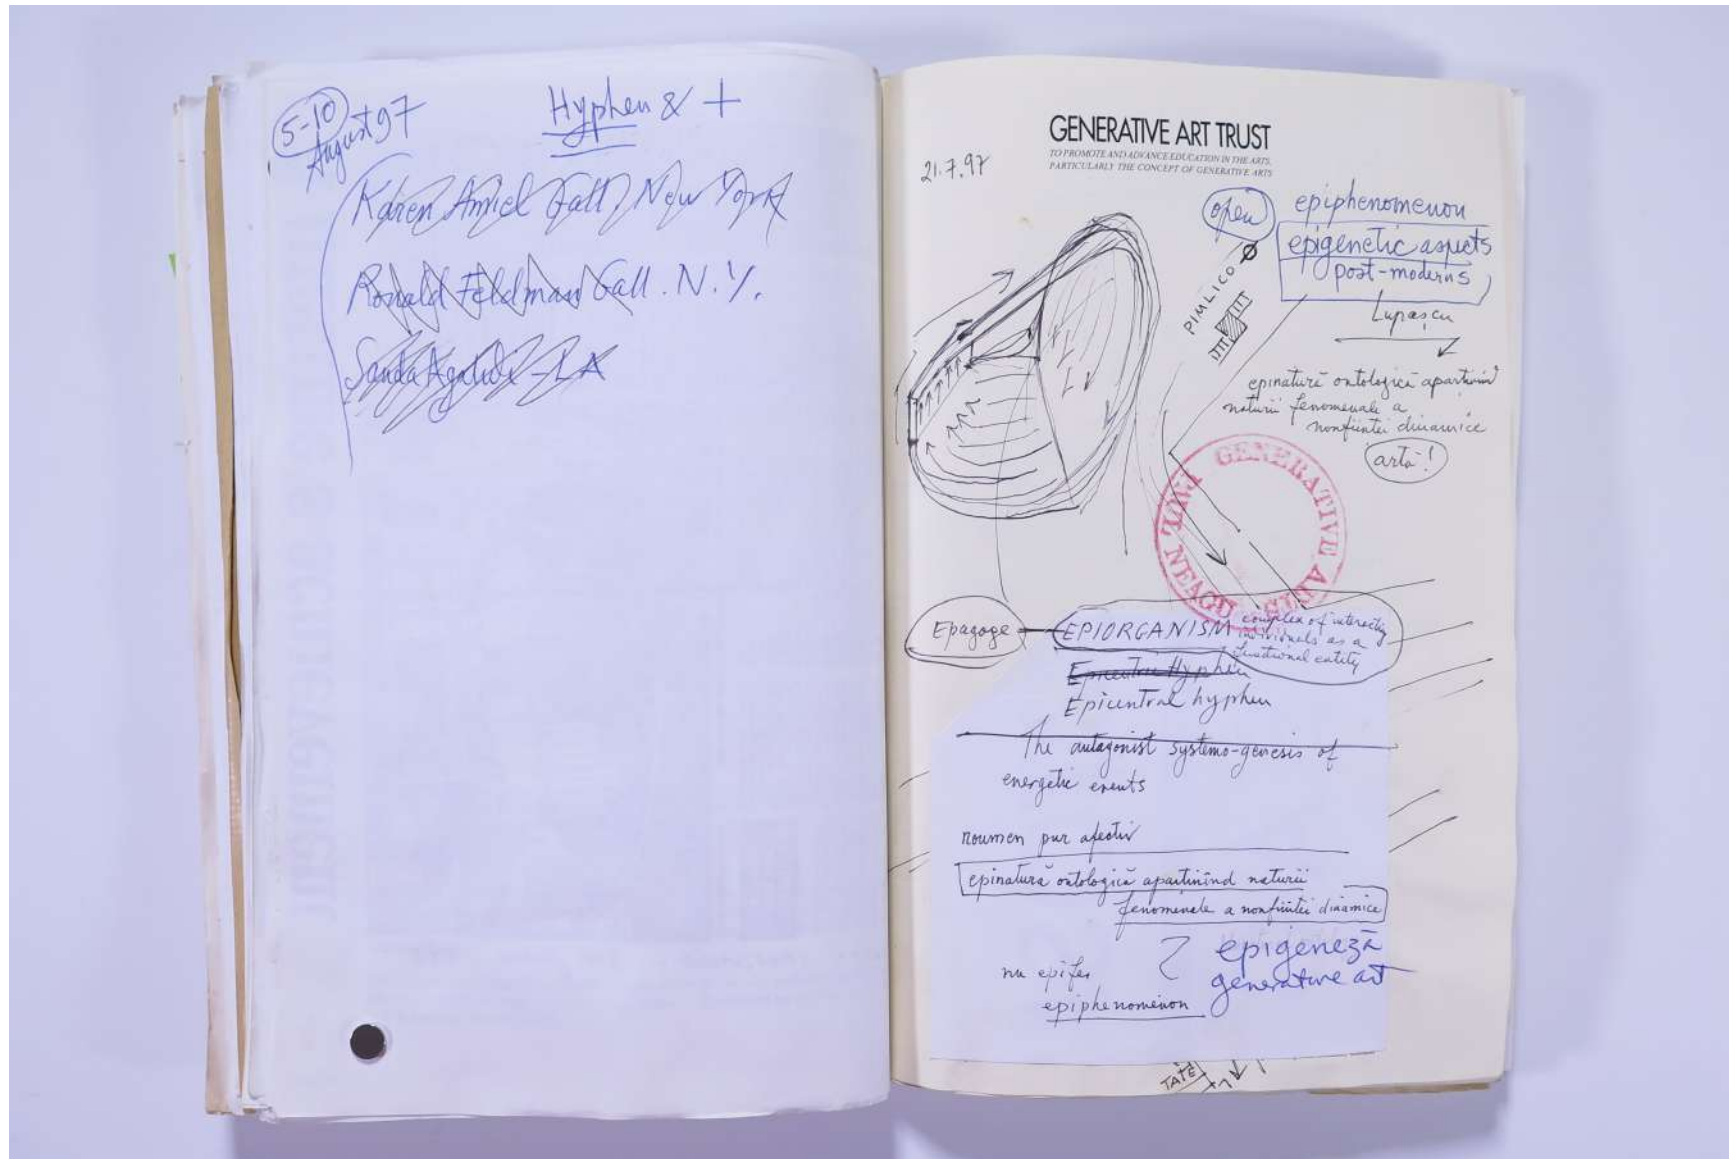 5-10
August 97
Hyphen & +
Karen Amiel Gall New York
Ronald Feldman Gall. N.Y.
Sanda Agalidi - LA
GENERATIVE ART TRUST
TO PROMOTE AND ADVANCE EDUCATION IN THE ARTS,
PARTICULARLY THE CONCEPT OF GENERATIVE ARTS
21.7.97
open
PIMLICO
epiphenomenon
epigenetic aspects
post-moderns
Lupașcu
epinatură ontologică aparținînd
naturii fenomenale a
nonființei dinamice
artă!
GENERATIVE ARTS
PAUL NEAGU
Epagoge
EPIORGANISM complex of interacting
individuals as a
functional entity
Epicentric Hyphen
Epicentral hyphen
The antagonist systemo-genesis of
energetic events
noumen pur afectiv
epinatură ontologică aparținînd naturii
fenomenale a nonființei dinamice
nu epifen
epiphenomenon
epigeneză
generative art
TATE